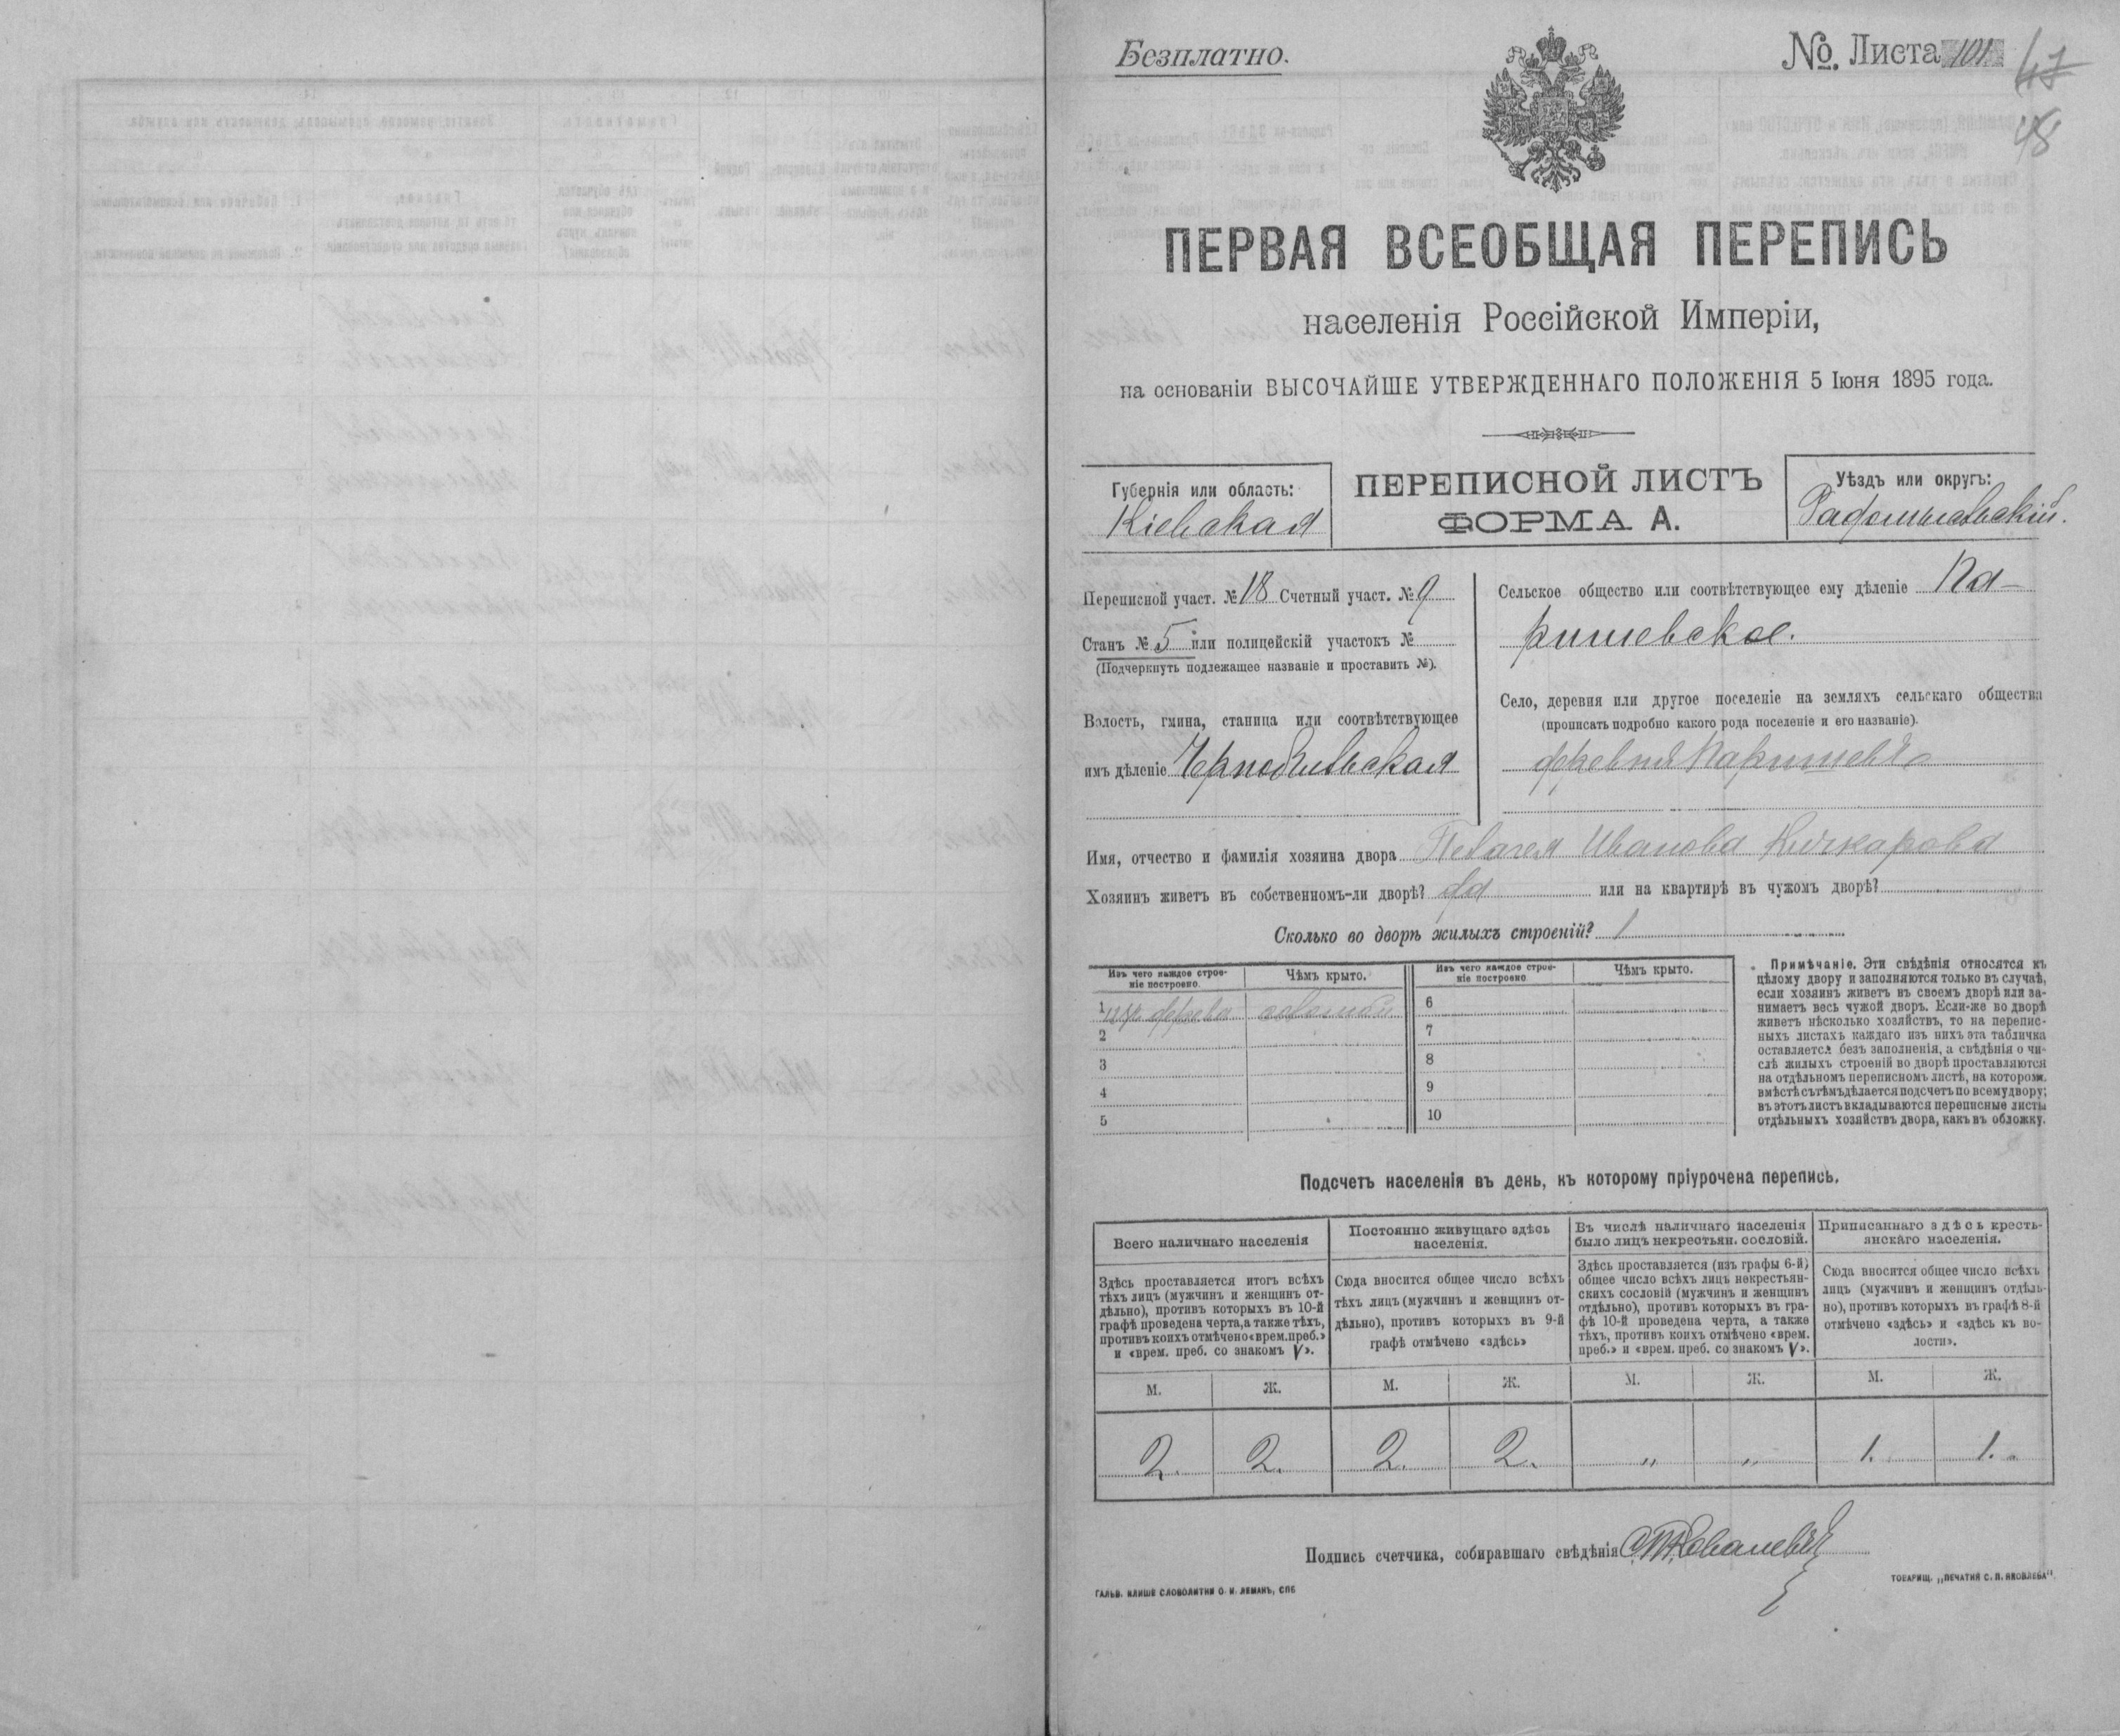 Безплатно.
№. Листа 101
47
48
ПЕРВАЯ ВСЕОБЩАЯ ПЕРЕПИСЬ
населенія Россійской Имперіи,
на основаніи ВЫСОЧАЙШЕ УТВЕРЖДЕННАГО ПОЛОЖЕНІЯ 5 Іюня 1895 года.
Губернія или область:
Кіевская
ПЕРЕПИСНОЙ ЛИСТЪ
ФОРМА А.
Уѣздъ или округъ:
Радомысльскій.
Переписной участ. № 18 Счетный участ. № 9
Станъ № 5 или полицейскій участокъ №
(Подчеркнуть подлежащее названіе и проставить №).
Волость, гмина, станица или соотвѣтствующее
имъ дѣленіе Чернобыльская
Сельское общество или соотвѣтствующее ему дѣленіе Па-
ришевское.
Село, деревня или другое поселеніе на земляхъ сельскаго общества
(прописать подробно какого рода поселеніе и его названіе).
деревня Паришевъ
Имя, отчество и фамилія хозяина двора Пелагея Иванова Кичкарова
Хозяинъ живетъ въ собственномъ-ли дворѣ? да или на квартирѣ въ чужомъ дворѣ?
Сколько во дворѣ жилыхъ строеній? 1
Изъ чего каждое строе-
ніе построено.
Чѣмъ крыто.
Изъ чего каждое строе-
ніе построено
Чѣмъ крыто.
1 изъ дерева соломой
2
3
4
5
6
7
8
9
10
Примѣчаніе. Эти свѣдѣнія относятся къ
цѣлому двору и заполняются только въ случаѣ,
если хозяинъ живетъ въ своемъ дворѣ или за-
нимаетъ весь чужой дворъ. Если-же во дворѣ
живетъ нѣсколько хозяйствъ, то на перепис-
ныхъ листахъ каждаго изъ нихъ эта табличка
оставляется безъ заполненія, а свѣдѣнія о чи-
слѣ жилыхъ строеній во дворѣ проставляются
на отдѣльномъ переписномъ листѣ, на которомъ
вмѣстѣ съ тѣмъ дѣлается подсчетъ по всему двору;
въ этотъ листъ вкладываются переписные листы
отдѣльныхъ хозяйствъ двора, какъ въ обложку.
Подсчетъ населенія въ день, къ которому пріурочена перепись.
Всего наличнаго населенія
Здѣсь проставляется итогъ всѣхъ
тѣхъ лицъ (мужчинъ и женщинъ от-
дѣльно), противъ которыхъ въ 10-й
графѣ проведена черта, а также тѣхъ,
противъ коихъ отмѣчено «врем. преб.»
и «врем. преб. со знакомъ V».
Постоянно живущаго здѣсь
населенія.
Сюда вносится общее число всѣхъ
тѣхъ лицъ (мужчинъ и женщинъ от-
дѣльно), противъ которыхъ въ 9-й
графѣ отмѣчено «здѣсь»
Въ числѣ наличнаго населенія
было лицъ некрестьян. сословій.
Здѣсь проставляется (изъ графы 6-й)
общее число всѣхъ лицъ некрестьян-
скихъ сословій (мужчинъ и женщинъ
отдѣльно), противъ которыхъ въ гра-
фѣ 10-й проведена черта, а также
тѣхъ, противъ коихъ отмѣчено «врем.
преб.» и «врем. преб. со знакомъ V».
Приписаннаго здѣсь кресть-
янскаго населенія.
Сюда вносится общее число всѣхъ
лицъ (мужчинъ и женщинъ отдѣль-
но), противъ которыхъ въ графѣ 8-й
отмѣчено «здѣсь» и «здѣсь къ во-
лости».
М. Ж. М. Ж. М. Ж. М. Ж.
2. 2. 2. 2. „ „ 1. 1.
Подпись счетчика, собиравшаго свѣдѣнія
ГАЛЬВ. КЛИШЕ СЛОВОЛИТНИ О. И. ЛЕМАНЪ, СПБ
ТОВАРИЩ. „ПЕЧАТНИ С. П. ЯКОВЛЕВА"